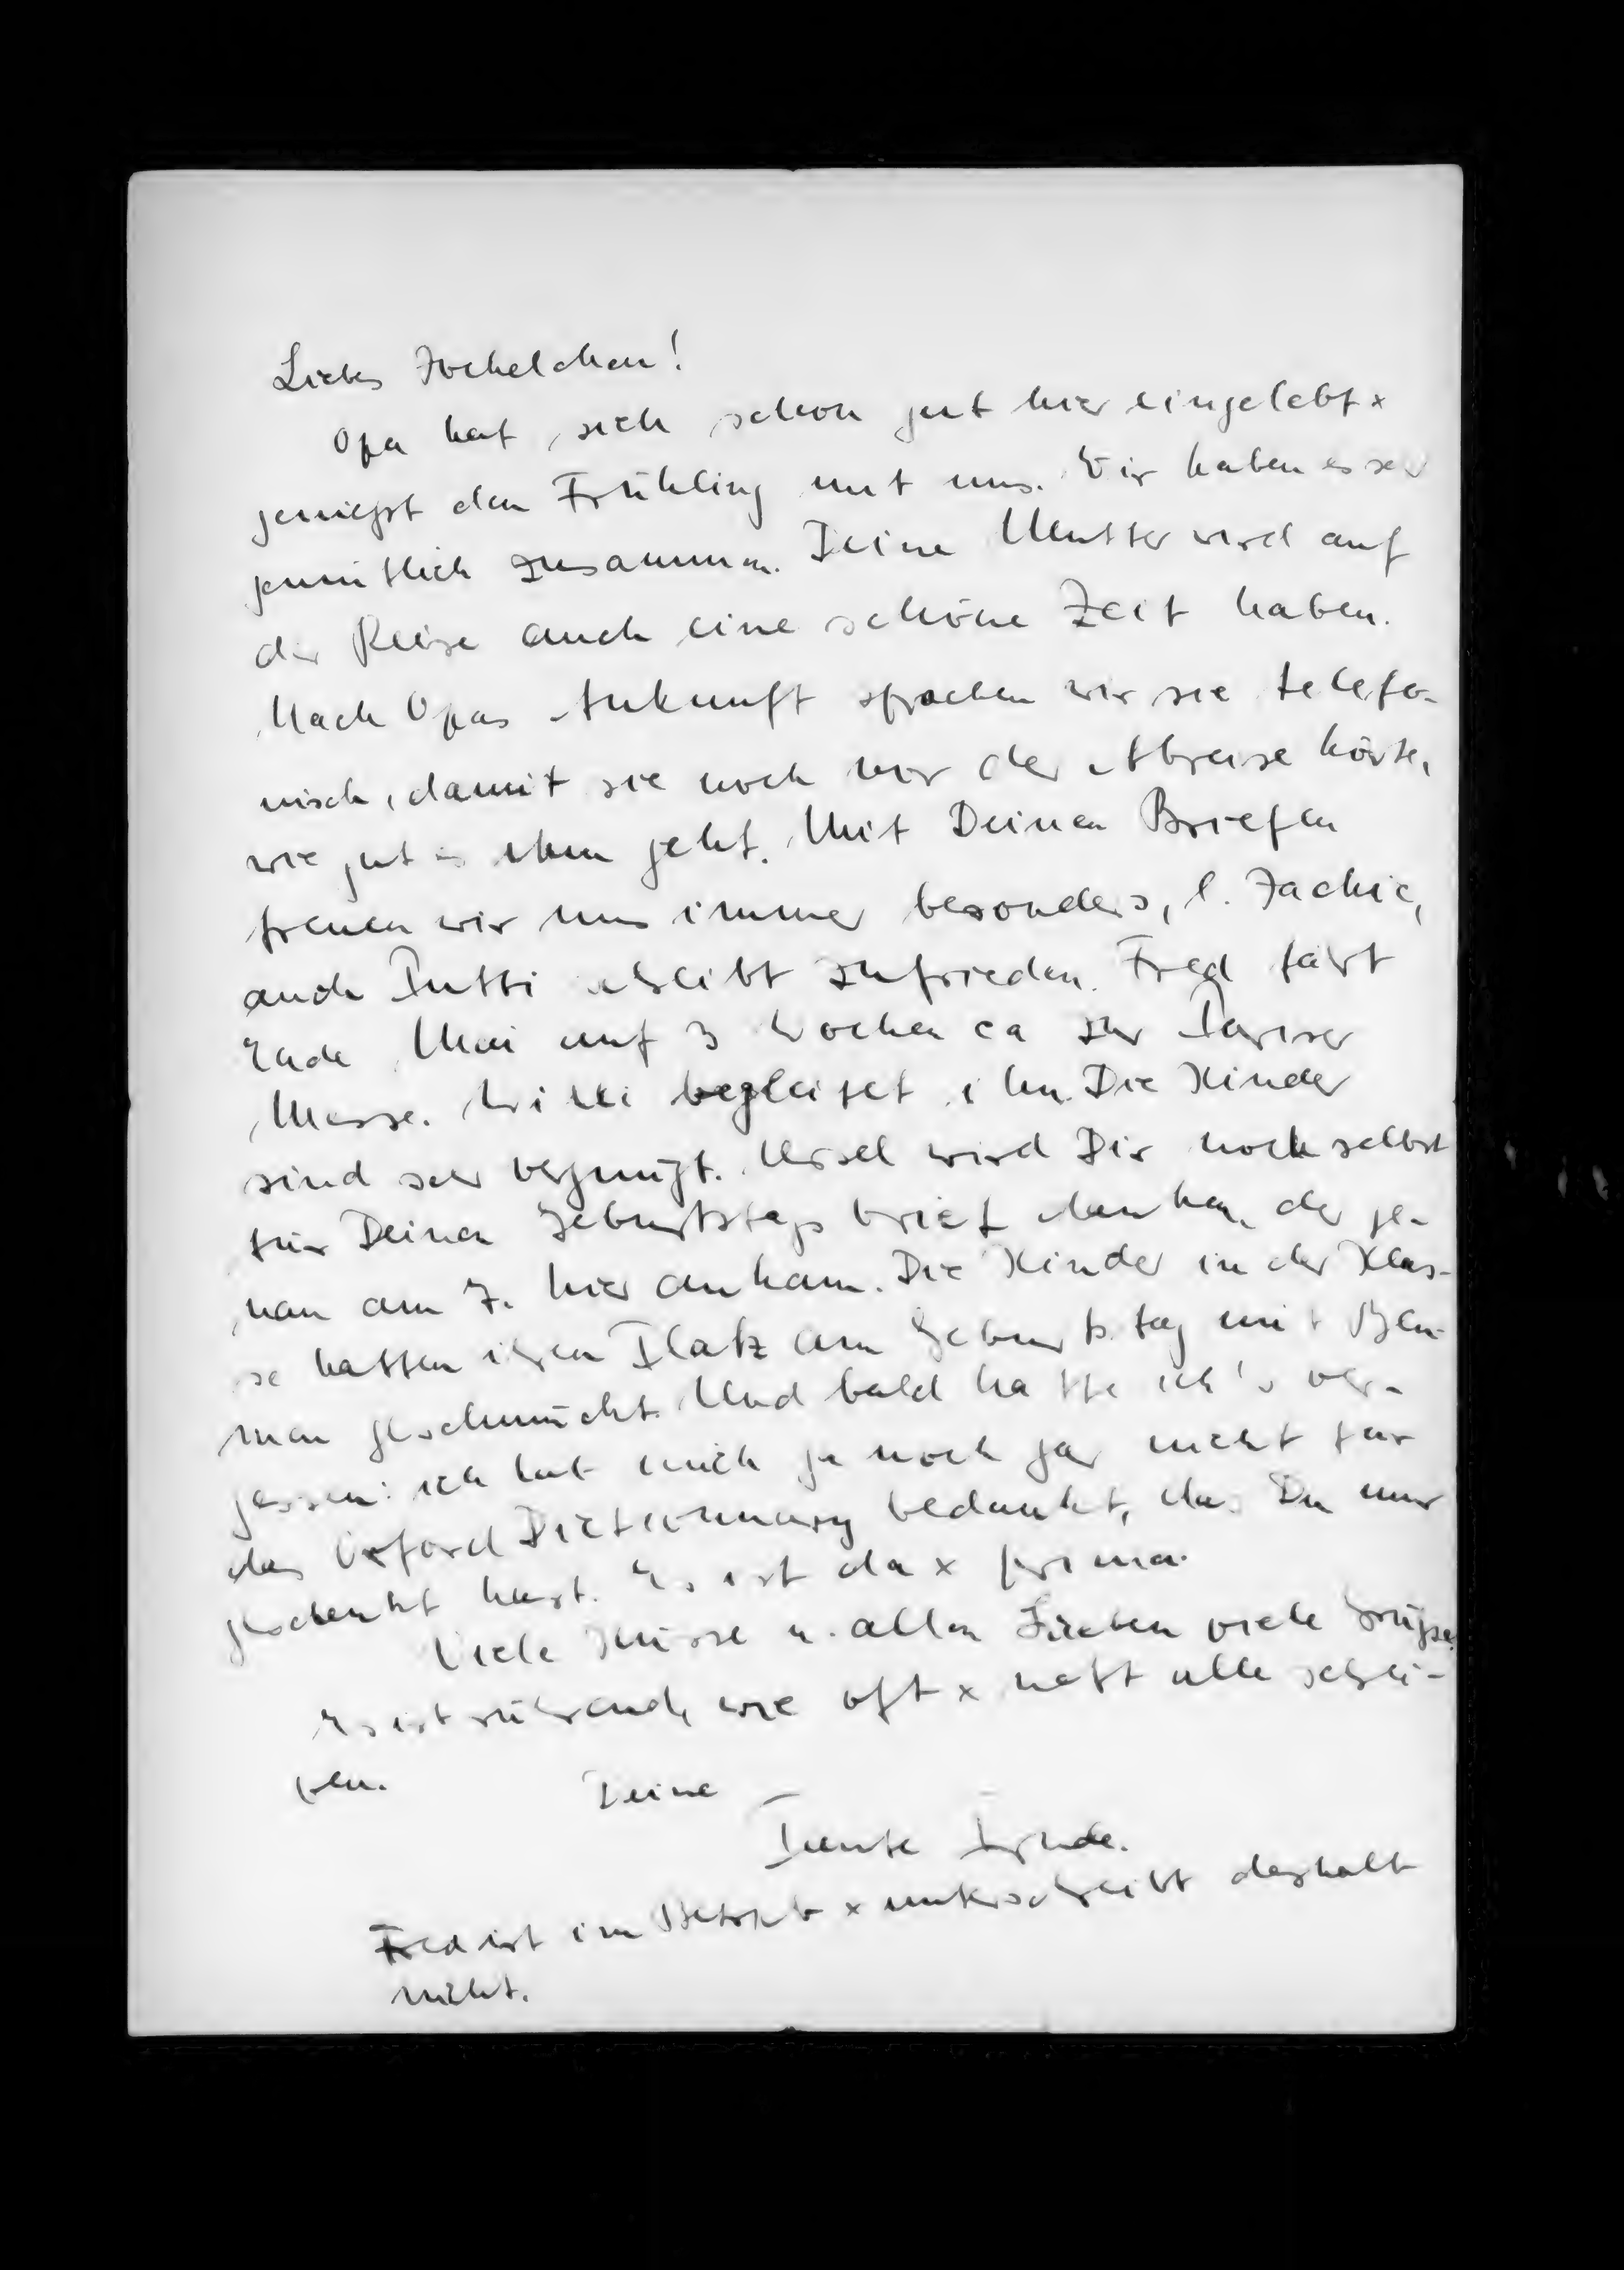 Liebes Jockelchen!
Opa hat sich schon gut hier eingelebt x
geniesst den Frühling mit uns. Wir haben es ser
gemütlich zusammen. Deine Mutter wird auf
der Reise auch eine schöne Zeit haben.
Nach Opas Ankunft sprachen wir sie telefo-
nisch, damit sie noch vor der Abreise hörte,
wie gut es ihm geht. Mit Deinen Briefen
freuen wir uns immer besonders, l. Jackie,
auch Putti schreibt zufrieden. Fred färt
Ende Mai auf 3 Wochen ca zur Pariser
Messe. Willi begleitet ihn. Die Kinder
sind ser vergnügt. Ursel wird Dir noch selbst
für Deinen Geburtstagsbrief danken, der ge-
nau am 7. hier ankam. Die Kinder in der Klas-
se hatten ihren Platz am Geburtstag mit Blu-
men geschmückt. Und bald hätte ich's ver-
gessen: ich hab mich ja noch gar nicht für
das Oxford Dictionnary bedankt, das Du mir
geschenkt hast. Es ist da x prima.
Viele Küsse u. allen Lieben viele Grüsse.
Es ist rührend, wie oft x nett alle schrei-
ben. Deine
Tante Trude.
Fred ist im Betrieb x unterschreibt deshalb
nicht.